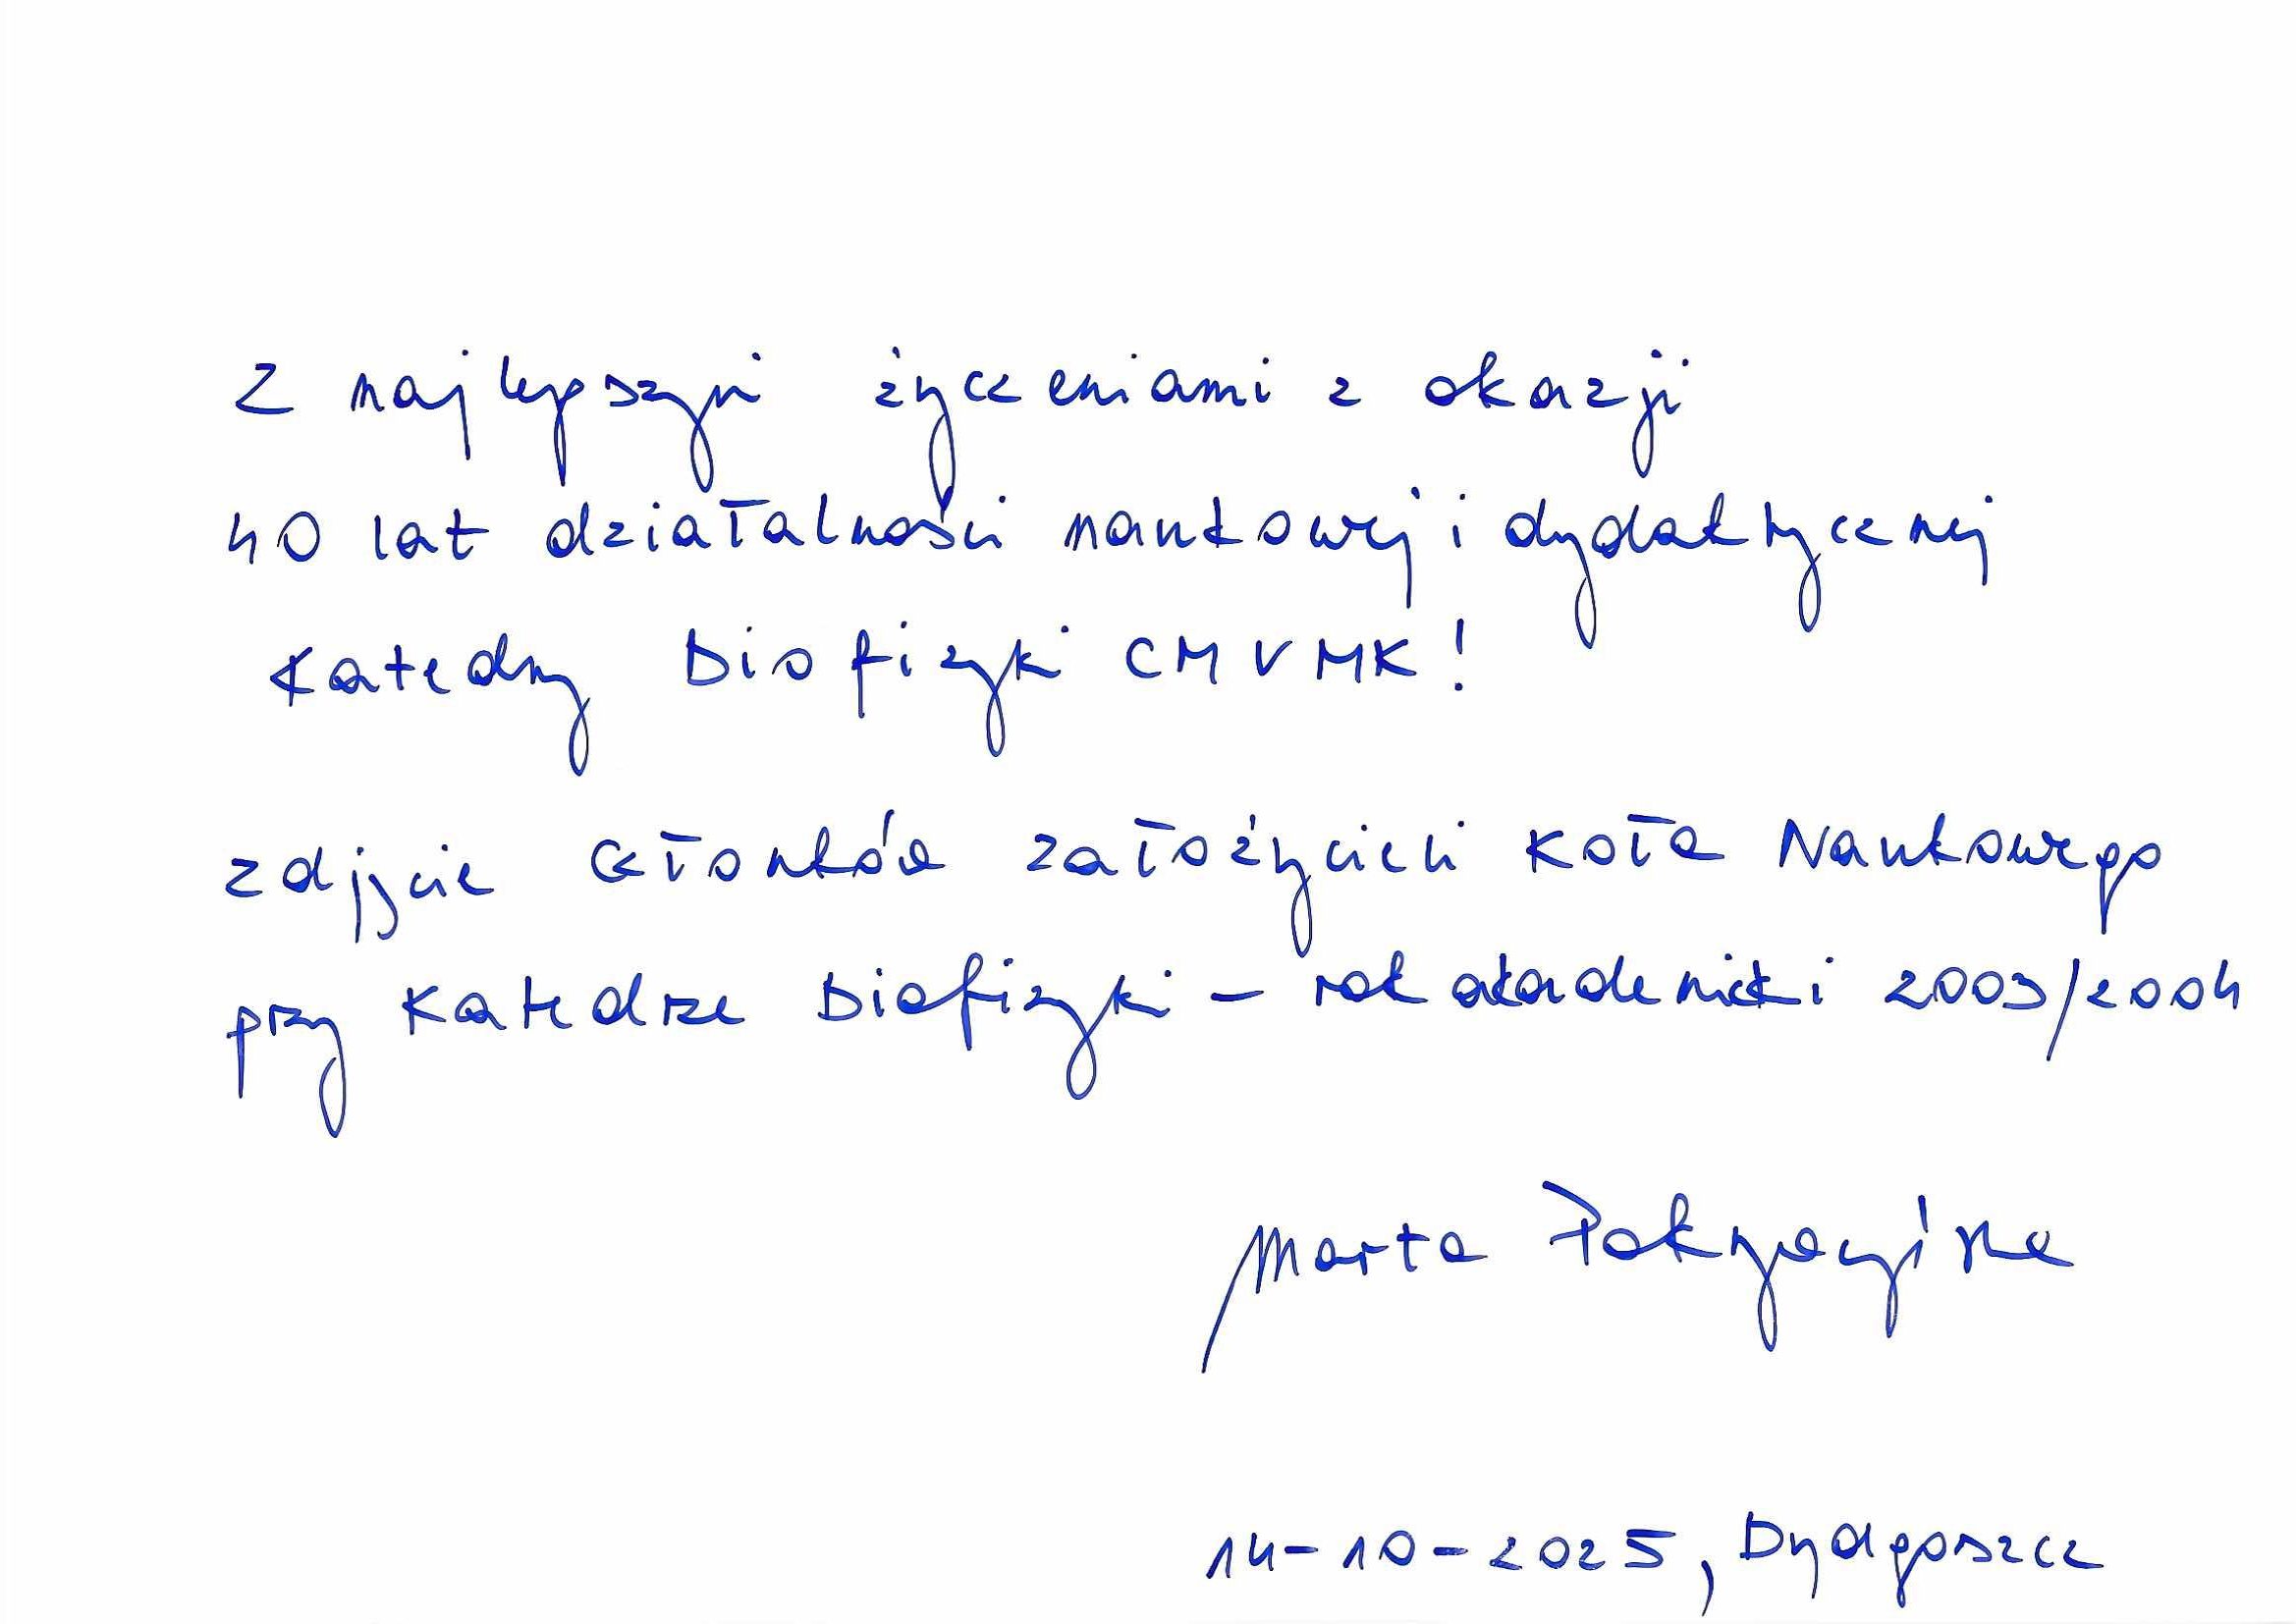 Z najlepszymi życzeniami z okazji
40 lat działalności naukowej i dydaktycznej
Katedry Biofizyki CM UMK!
zdjęcie członków założycieli Koła Naukowego
przy Katedrze Biofizyki – rok akademicki 2003/2004
Marta
14-10-2025, Bydgoszcz